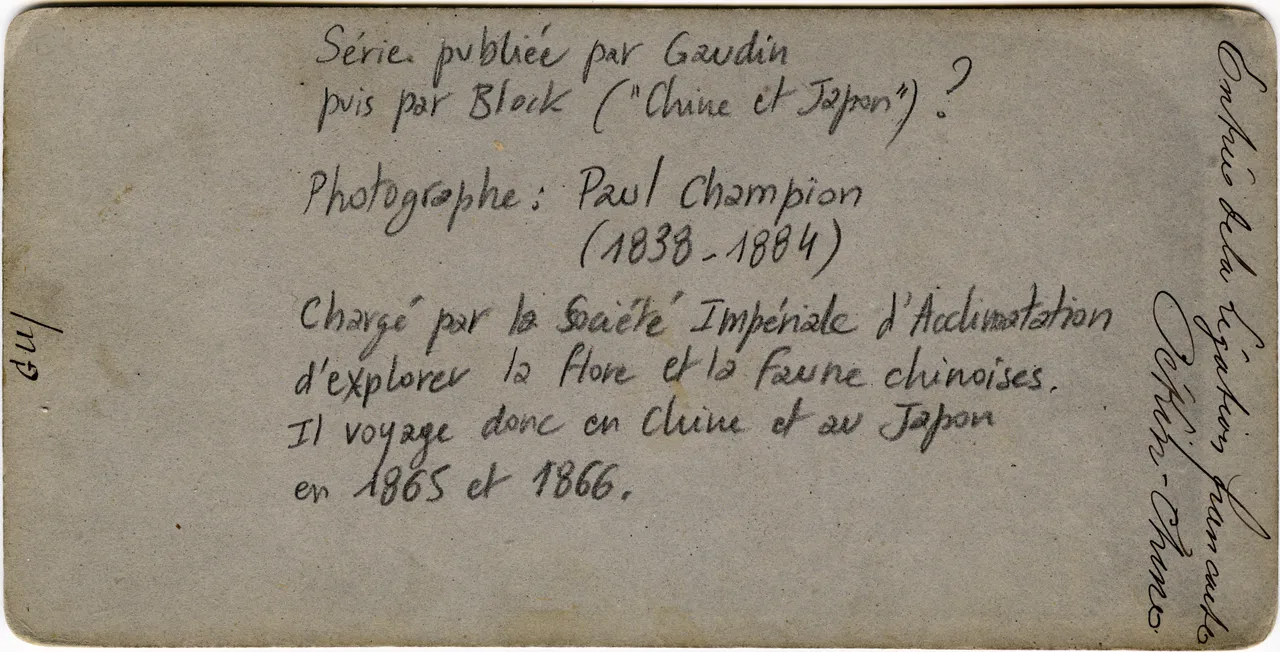 Série publiée par Gaudin
puis par Block ("Chine et Japon") ?
Photographe : Paul Champion
(1838-1884)
Chargé par la Société Impériale d'Acclimatation
d'explorer la flore et la faune chinoises.
Il voyage donc en Chine et au Japon
en 1865 et 1866.
Entrée de la Légation francaise
Pékin-Chine